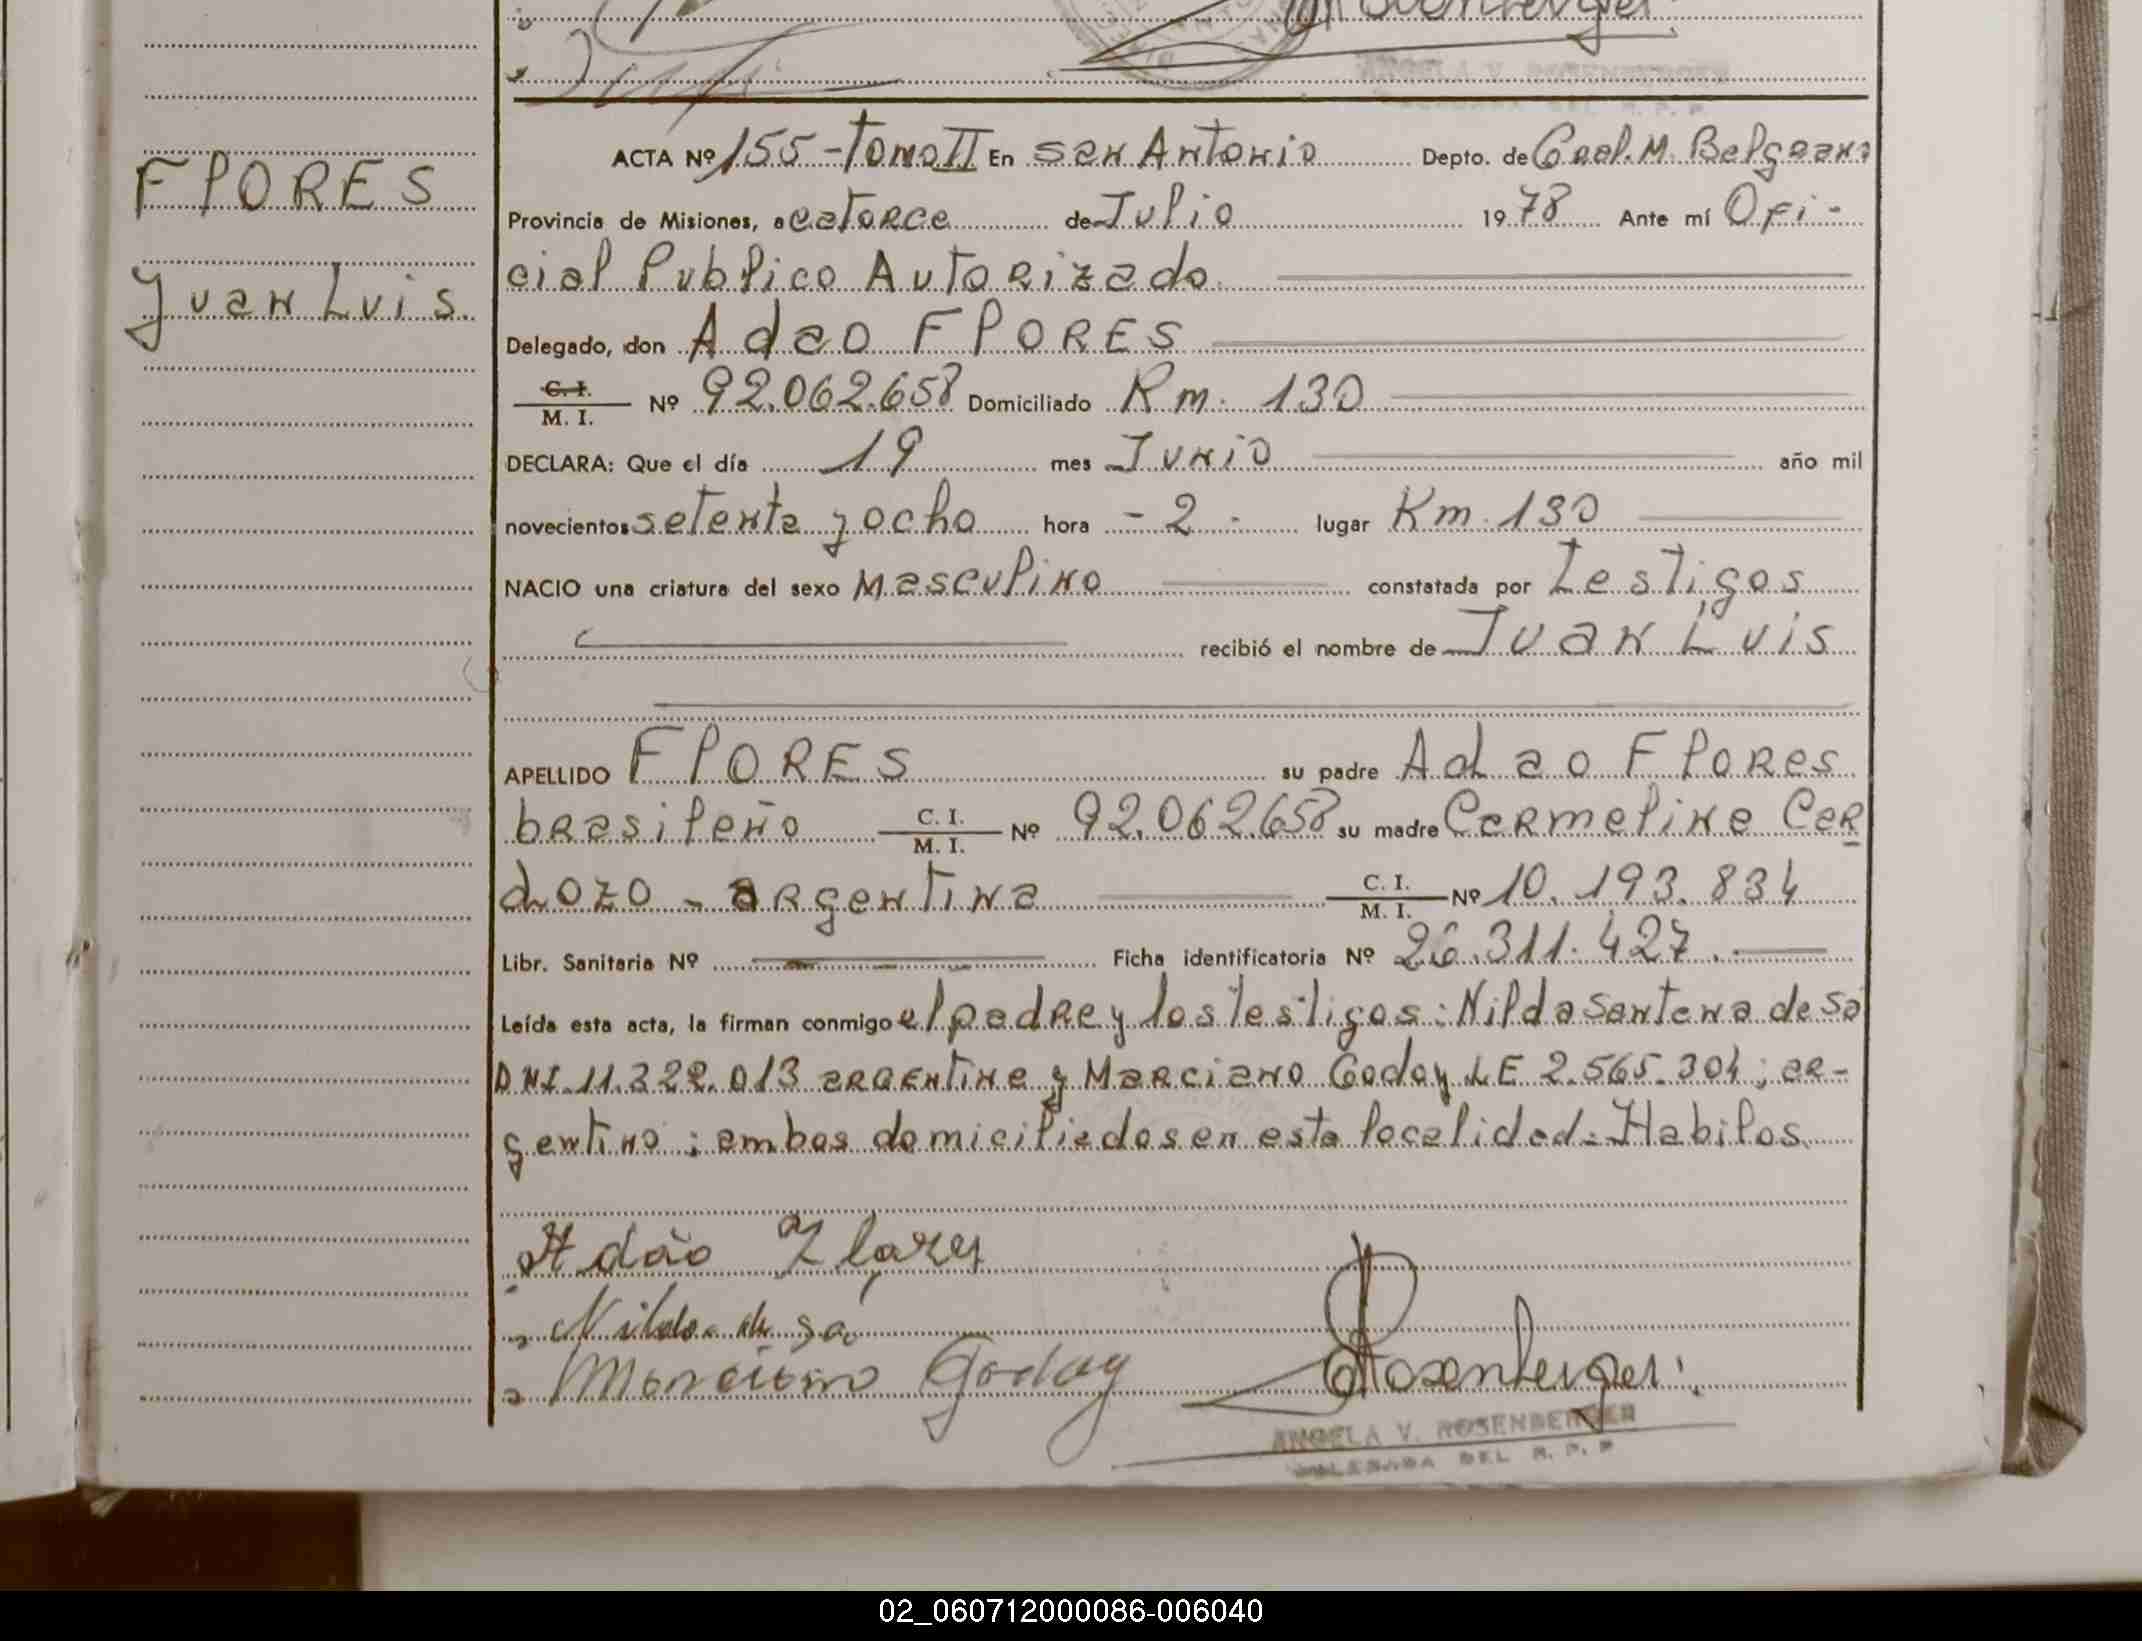 FLORES
Juan Luis.
ACTA Nº 155 - Tomo II En San Antonio Depto. de Gral. M. Belgrano
Provincia de Misiones, a catorce de Julio 1978 Ante mí Ofi-
cial Publico Autorizado.
Delegado, don Adao FLORES
C. I. / M. I. Nº 92.062.658 Domiciliado Km. 130
DECLARA: Que el día 19 mes Junio año mil
novecientos setenta y ocho hora - 2 - lugar Km. 130
NACIO una criatura del sexo Masculino constatada por Testigos
recibió el nombre de Juan Luis
APELLIDO FLORES su padre Adao Flores
brasileño C. I. / M. I. Nº 92.062.658 su madre Carmelina Car
dozo - argentina C. I. / M. I. Nº 10.193.834
Libr. Sanitaria Nº Ficha identificatoria Nº 26.311.427.
Leída esta acta, la firman conmigo el padre y los testigos: Nilda Santana de Sa
DNI 11.322.013 argentina y Marciano Godoy LE 2.565.304; ar-
gentino; ambos domiciliados en esta localidad. Habilos.
Adão Flores
Nilda de Sa
Marciano Goday
Rosenberger
ANGELA V. ROSENBERGER
DELEGADA DEL R. P. P
02_060712000086-006040